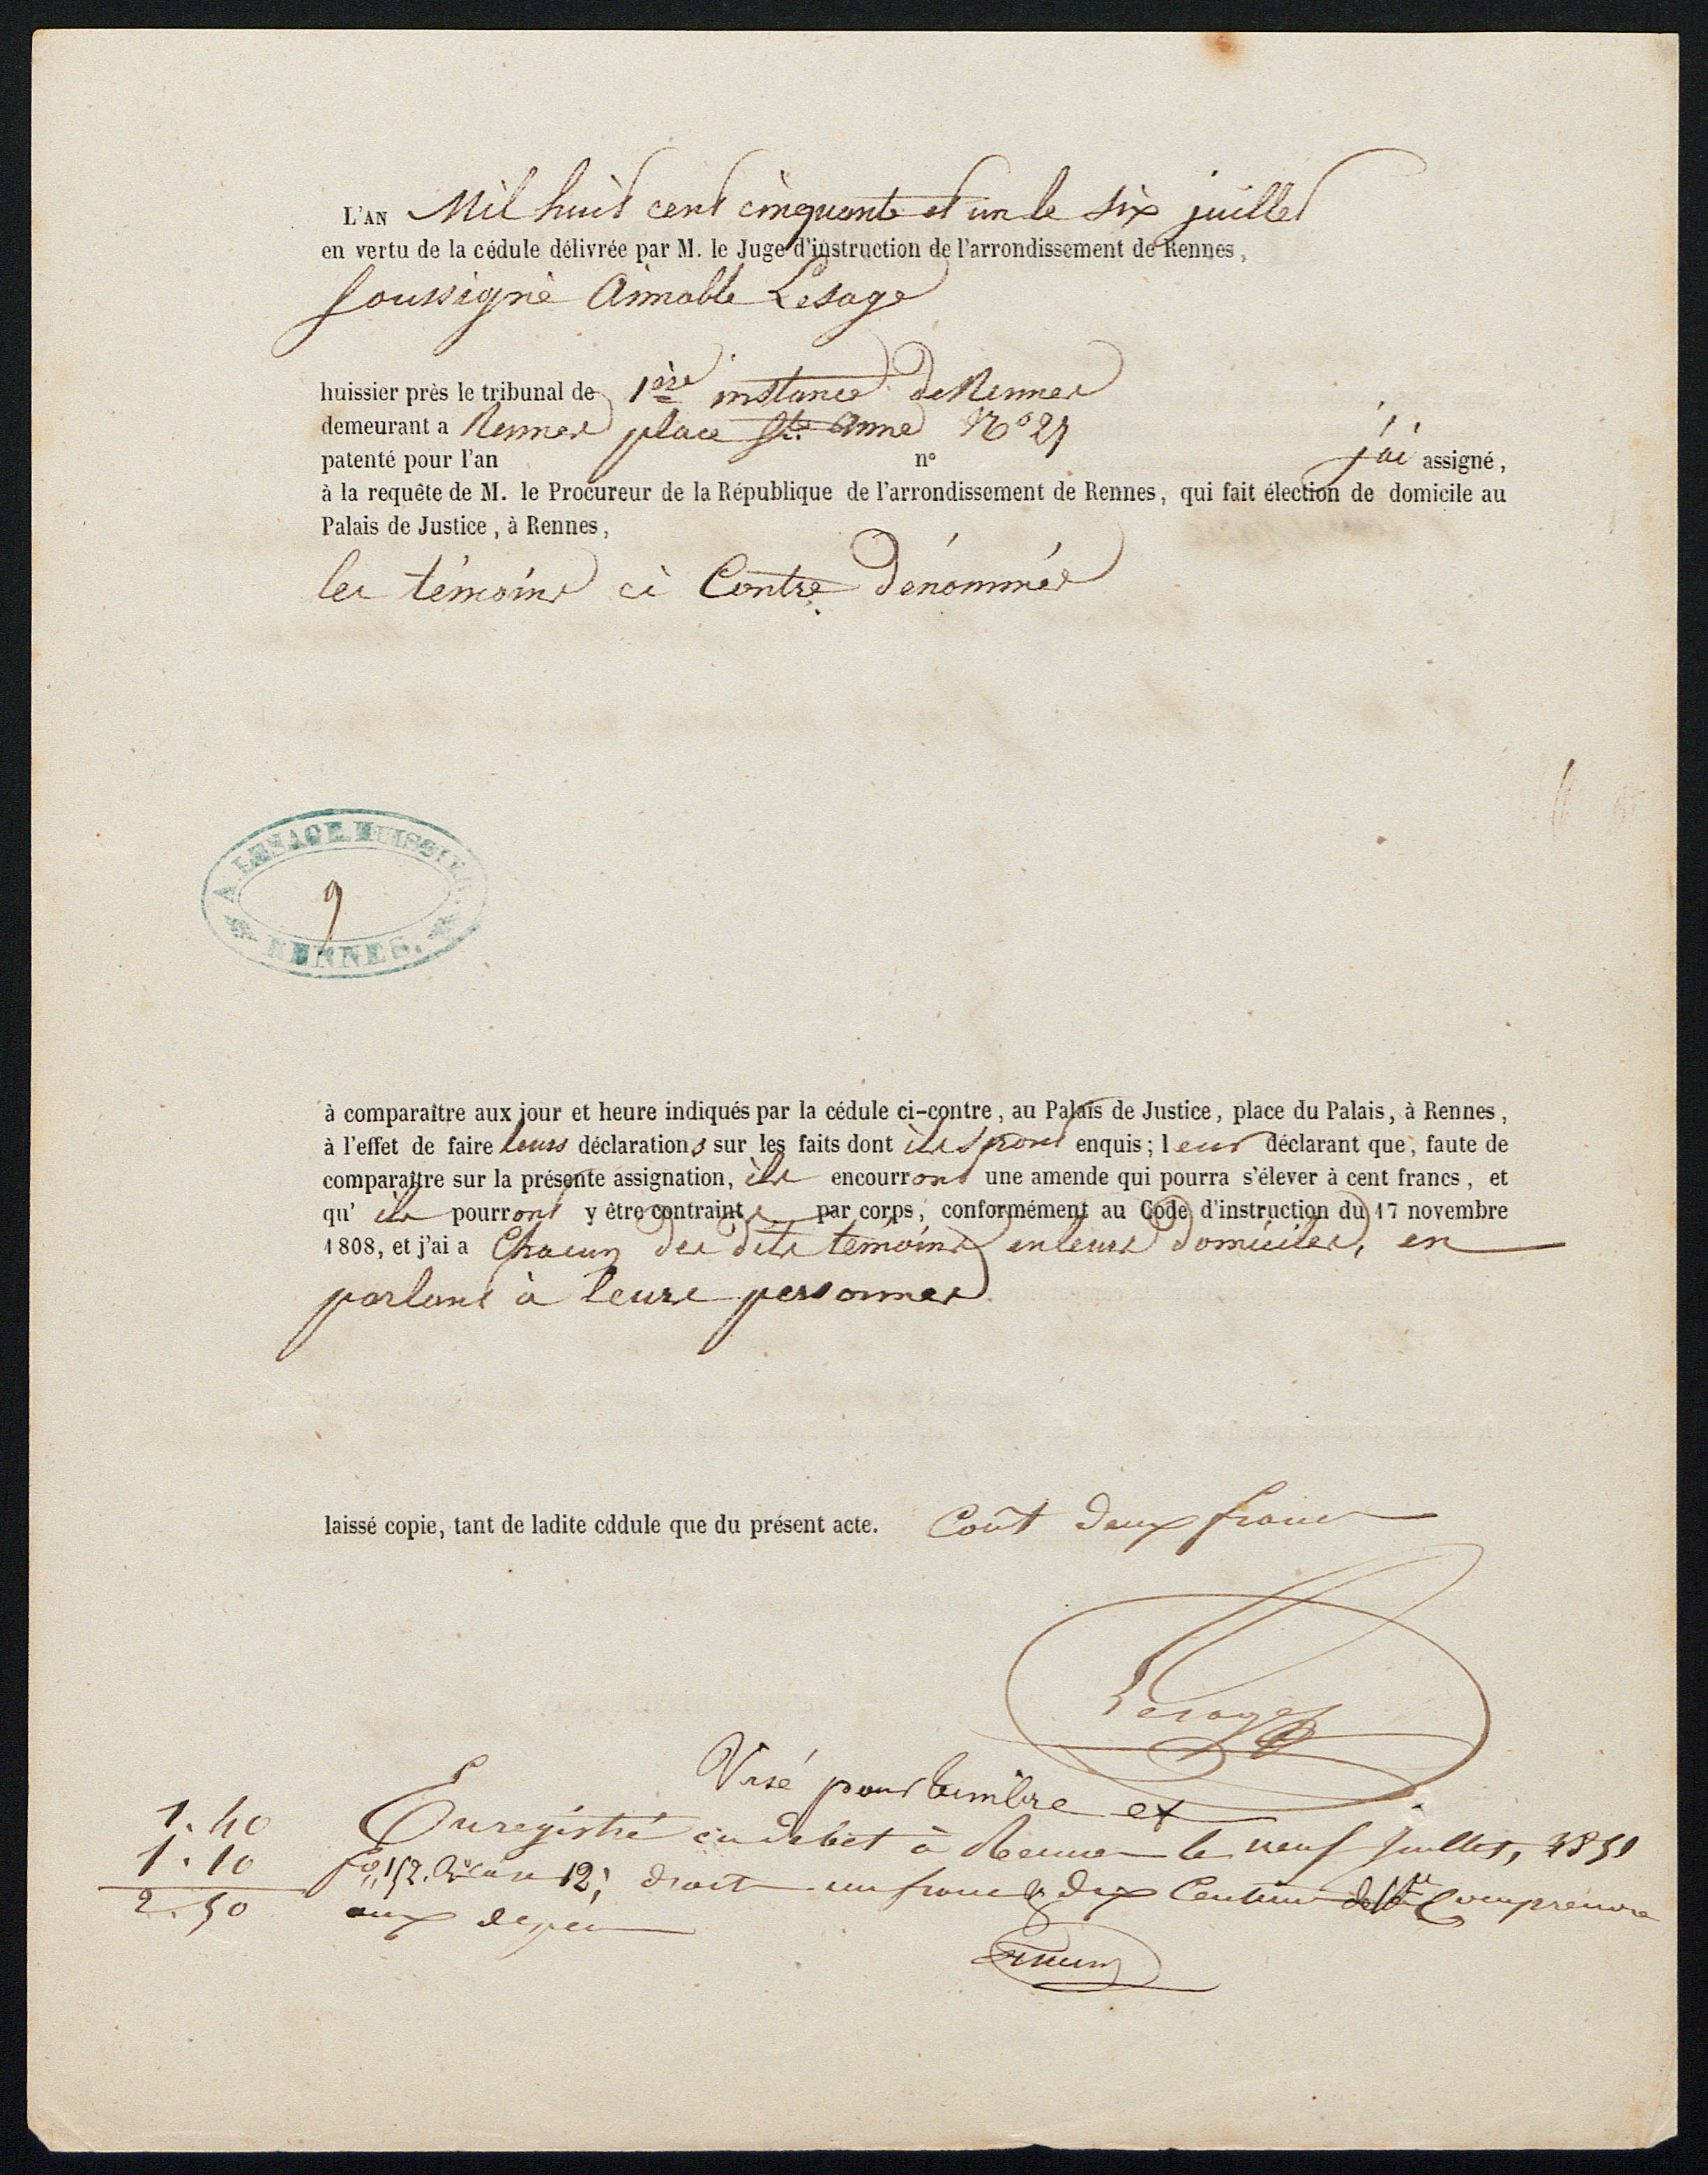 L'AN Mil huit cent cinquante et un le six juillet
en vertu de la cédule délivrée par M. le Juge d'instruction de l'arrondissement de Rennes,
soussigné Aimable Lesage
huissier près le tribunal de 1ère instance de Rennes
demeurant a Rennes place Ste Anne No 21
patenté pour l'an n° j'ai assigné,
à la requête de M. le Procureur de la République de l'arrondissement de Rennes, qui fait élection de domicile au
Palais de Justice, à Rennes,
les témoins ci Contre dénommés
A. LESAGE HUISSIER
9
RENNES.
à comparaître aux jour et heure indiqués par la cédule ci-contre, au Palais de Justice, place du Palais, à Rennes,
à l'effet de faire leurs déclarations sur les faits dont ils seront enquis; leur déclarant que, faute de
comparaître sur la présente assignation, ils encourront une amende qui pourra s'élever à cent francs, et
qu' ils pourront y être contraints par corps, conformément au Code d'instruction du 17 novembre
1808, et j'ai a Chacun des dits témoins en leurs domiciles, en
parlant à leurs personnes
laissé copie, tant de ladite cddule que du présent acte. Coût deux francs
Lesage
Visé pour timbre et
1. 40 Enregistré en debet à Rennes le neuf juillet, 1851
1. 10 fo 152. 12; droit un franc dix Centimes Comprendre
2. 50 aux depens